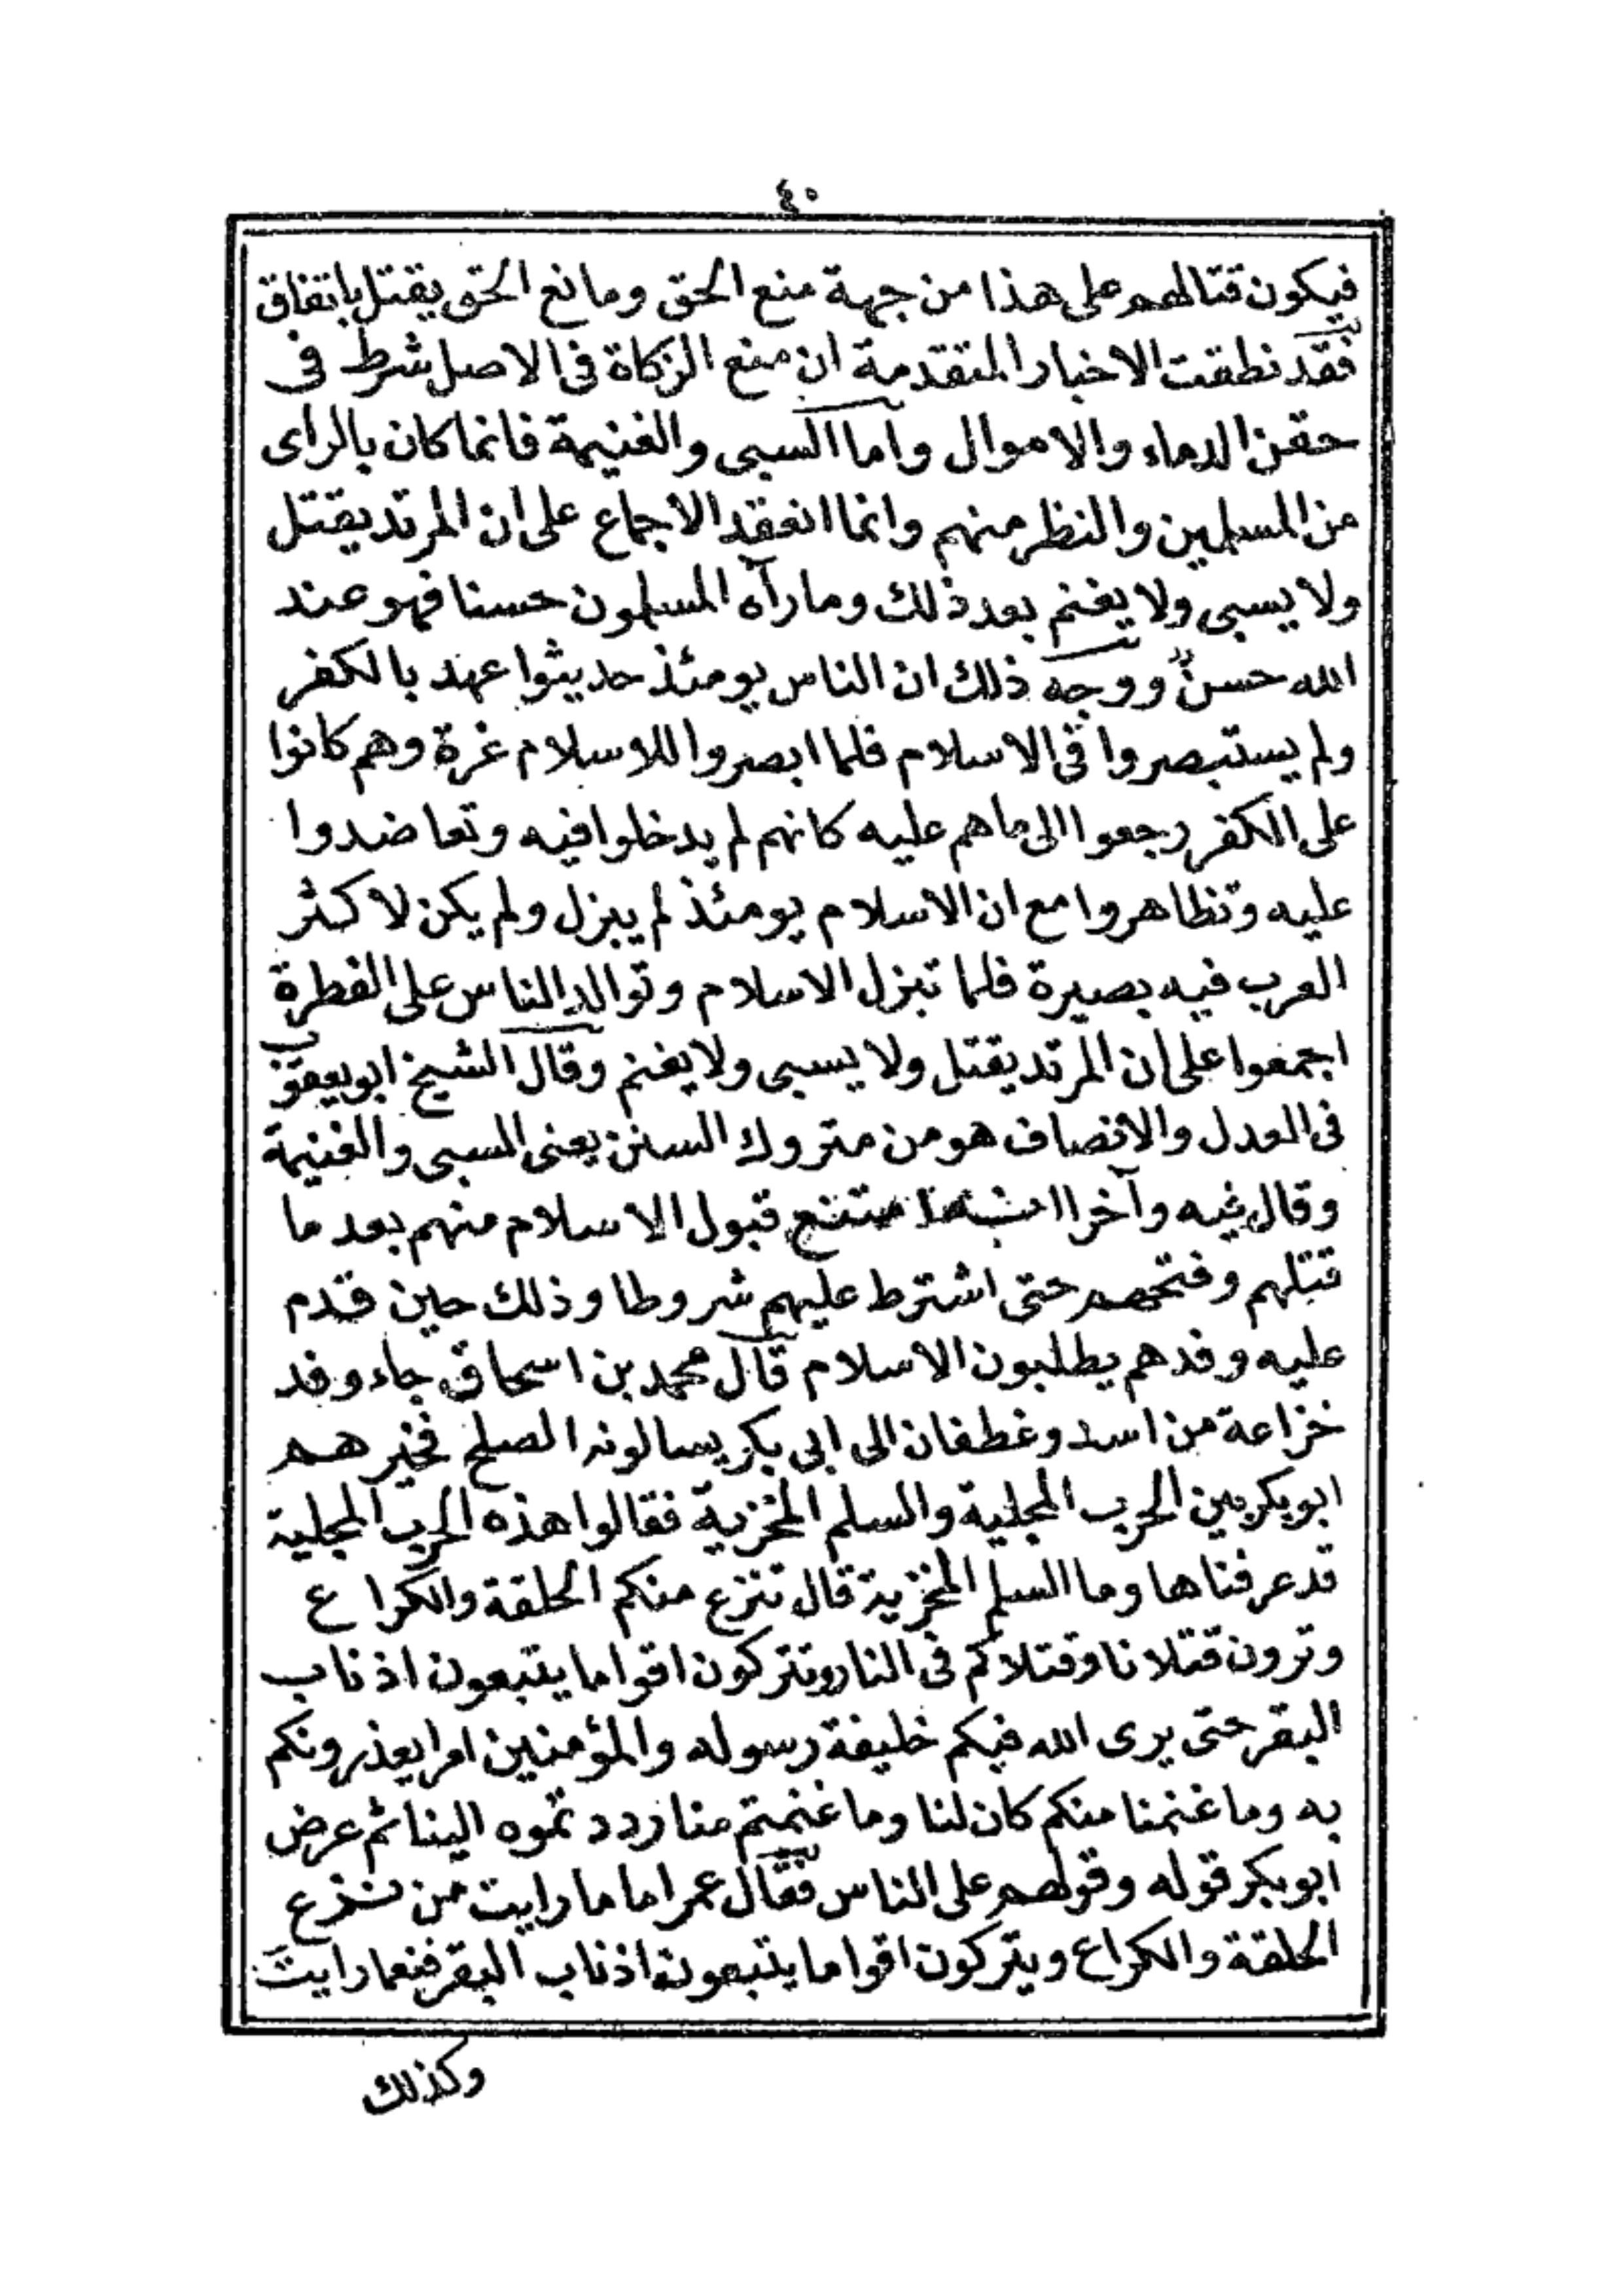 ٤٠
فيكون قتالهم على هذا من جهة منع الحق ومانع الحق يقتل باتفاق
فقد نطقت الاخبار المتقدمة ان منع الزكاة في الاصل شرط في
حقن الدماء والاموال واما السبى والغنيمة فانما كان بالراى
من المسلمين والنظر منهم وانما انعقد الاجماع على ان المرتد يقتل
ولا يسبى ولا يغنم بعد ذلك وما رآه المسلمون حسنا فهو عند
الله حسن ووجه ذلك ان الناس يومئذ حديثوا عهد بالكفر
ولم يستبصروا في الاسلام فلما ابصروا للاسلام غرة وهم كانوا
على الكفر رجعوا الى ما هم عليه كانهم لم يدخلوا فيه وتعاضدوا
عليه وتظاهروا مع ان الاسلام يومئذ لم يبزل ولم يكن لاكثر
العرب فيه بصيرة فلما تبزل الاسلام وتوالد الناس على الفطرة
اجمعوا على ان المرتد يقتل ولا يسبى ولا يغنم وقال الشيخ ابو يعقوب
في العدل والانصاف هو من متروك السنن يعنى السبى والغنيمة
وقال فيه وآخر امتنع قبول الاسلام منهم بعد ما
قتلهم وفتحهم حتى اشترط عليهم شروطا وذلك حين قدم
عليه وفدهم يطلبون الاسلام قال محمد بن اسحاق جاء وفد
خزاعة من اسد وغطفان الى ابى بكر يسالونه الصلح فخيرهم
ابو بكر بين الحرب المجلية والسلم المخزية فقالوا هذه الحرب المجلية
قد عرفناها وما السلم المخزية قال تنزع منكم الحلقة والكراع
وترون قتلانا وقتلاكم في النار وتتركون اقواما يتبعون اذناب
البقر حتى يرى الله فيكم خليفة رسوله والمؤمنين امرا يعذرونكم
به وما غنمنا منكم كان لنا وما غنمتم منا رددتموه الينا ثم عرض
ابو بكر قوله وقولهم على الناس فقال عمر اما ما رايت من نزع
الحلقة والكراع ويتركون اقواما يتبعون اذناب البقر فنعما رايت
وكذلك